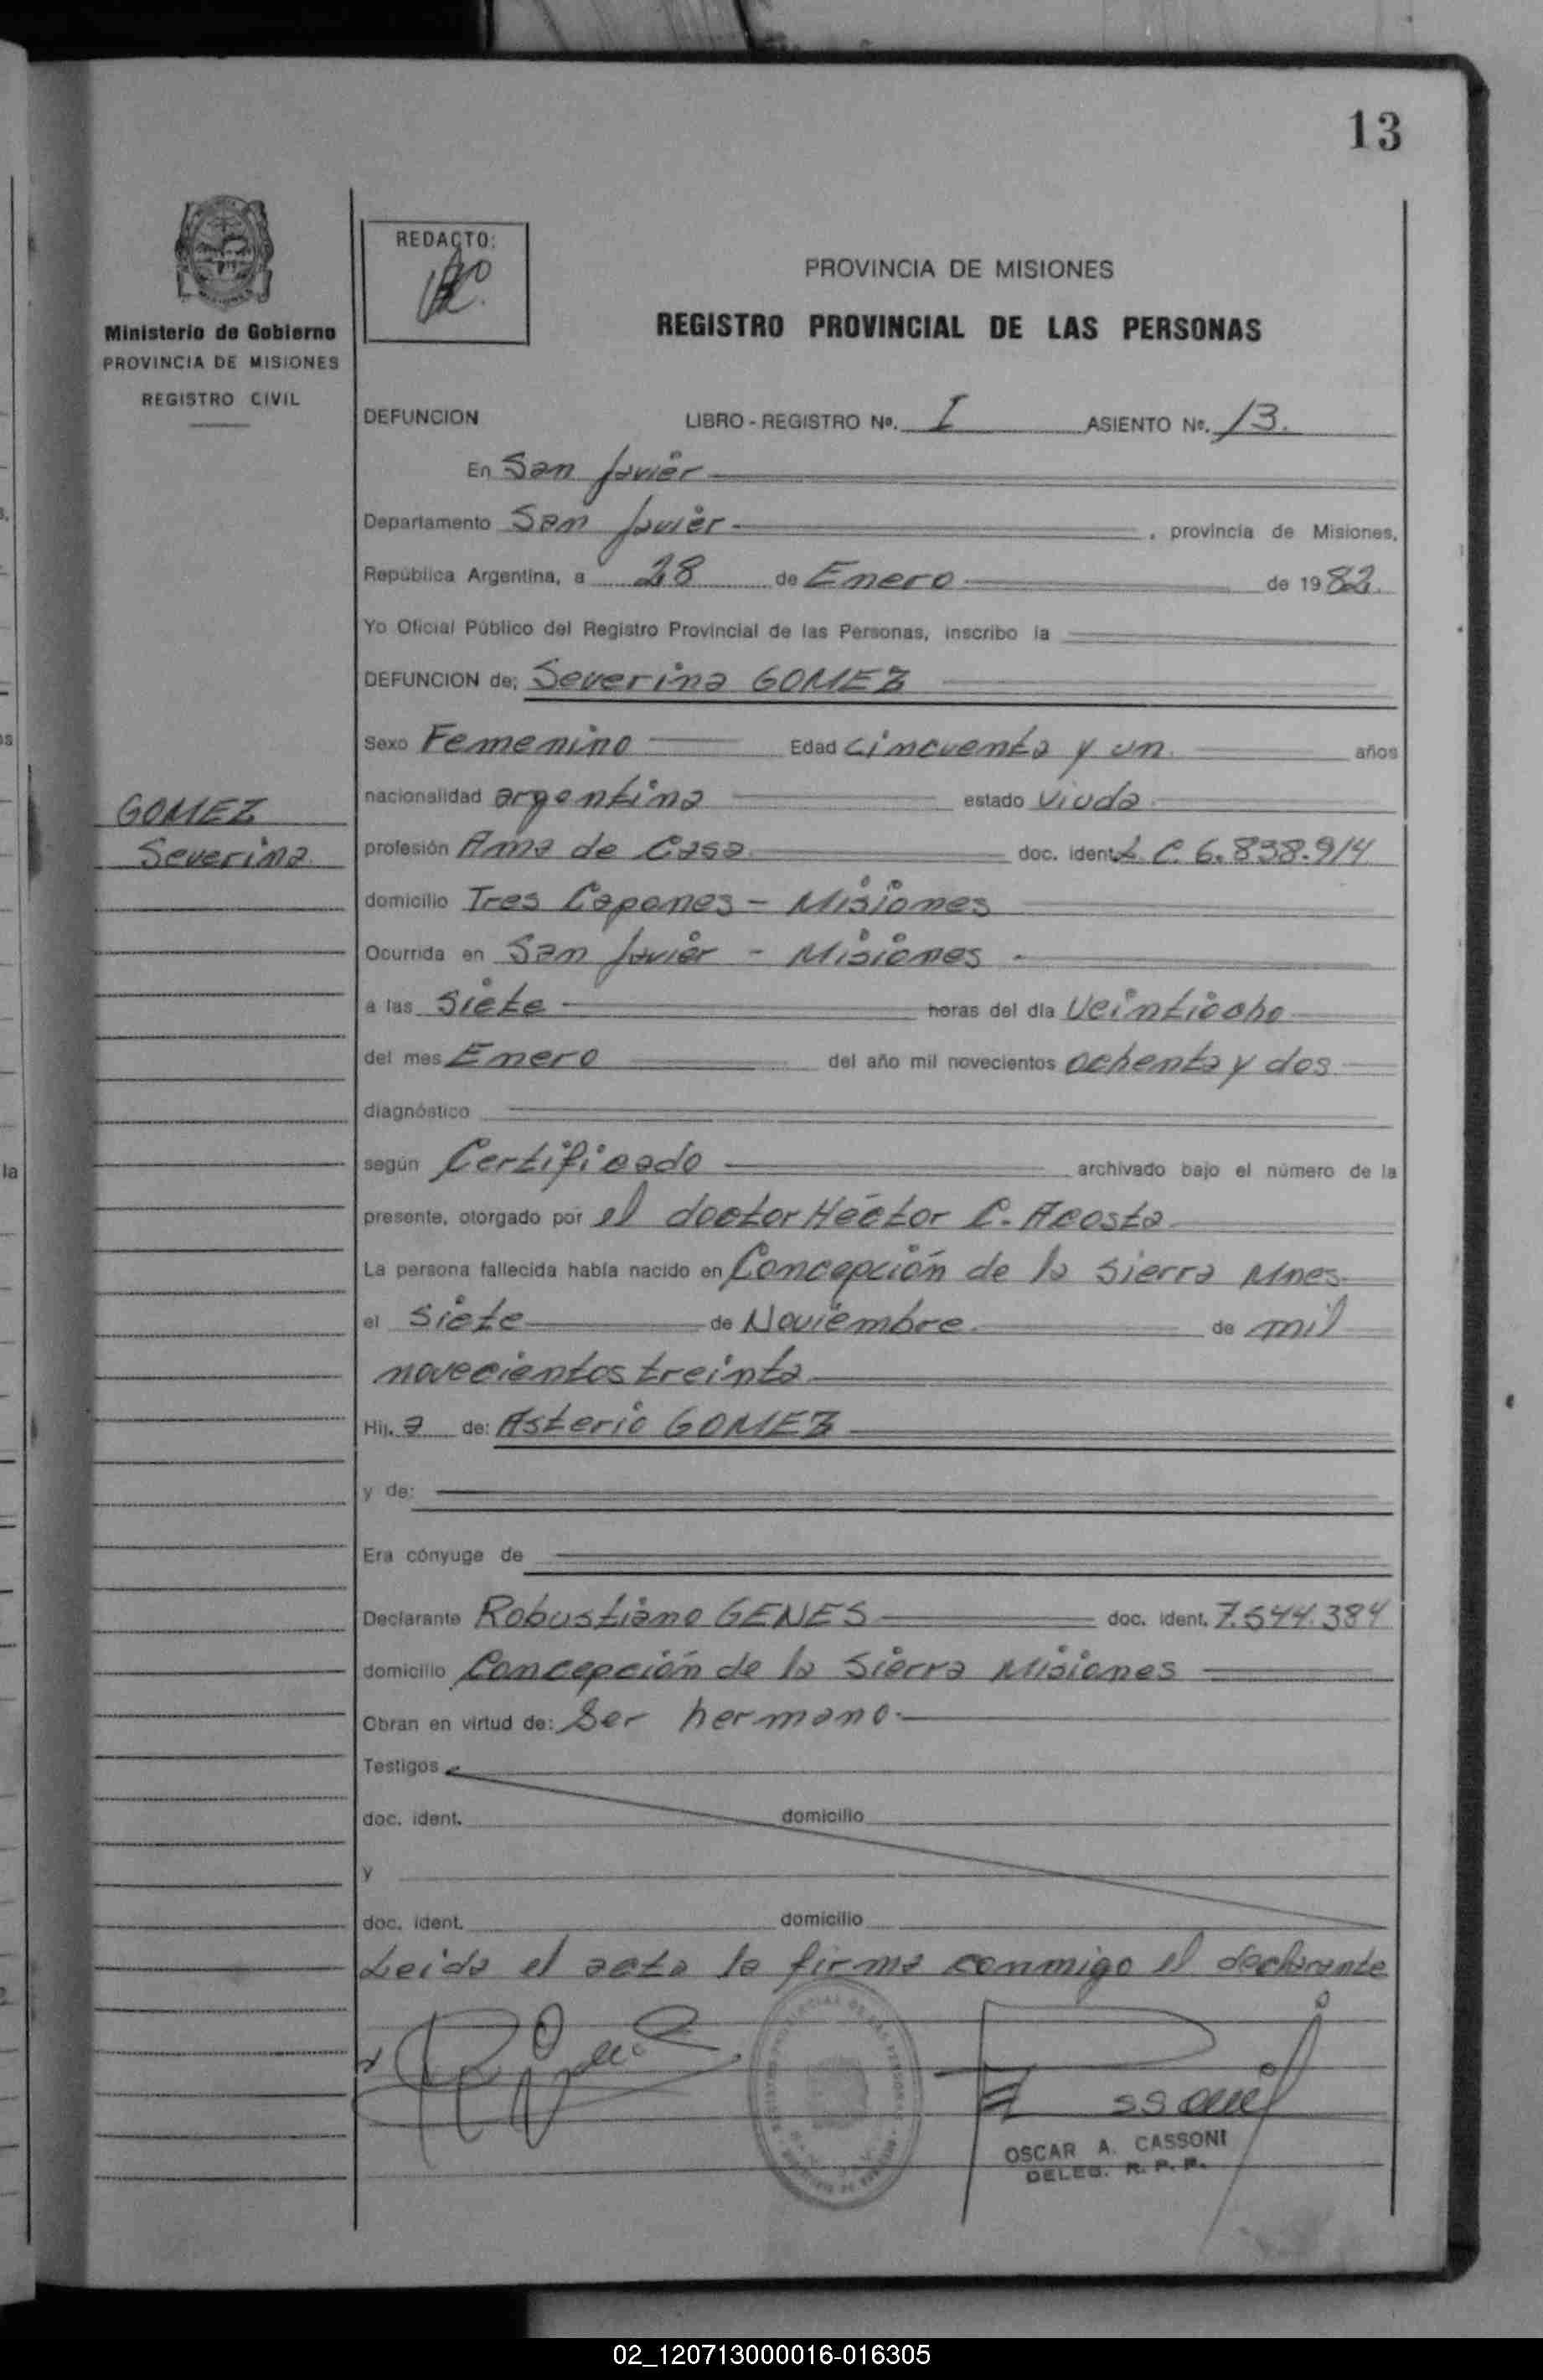 13
REDACTO:
PROVINCIA DE MISIONES
REGISTRO PROVINCIAL DE LAS PERSONAS
Ministerio de Gobierno
PROVINCIA DE MISIONES
REGISTRO CIVIL
DEFUNCION LIBRO - REGISTRO Nº. I ASIENTO Nº. 13.
En San Javier
Departamento San Javier , provincia de Misiones,
República Argentina, a 28 de Enero de 1982.
Yo Oficial Público del Registro Provincial de las Personas, inscribo la
DEFUNCION de: Severina GOMEZ
Sexo Femenino Edad cincuenta y un años
nacionalidad argentina estado viuda
GOMEZ
Severina
profesión Ama de Casa doc. ident. L.C. 6.838.914
domicilio Tres Capones - Misiones
Ocurrida en San Javier - Misiones
a las Siete horas del día Veintiocho
del mes Enero del año mil novecientos ochenta y dos
diagnóstico
según Certificado archivado bajo el número de la
presente, otorgado por el doctor Héctor C. Acosta
La persona fallecida había nacido en Concepción de la Sierra Mnes.
el Siete de Noviembre de mil
novecientos treinta
Hij.a de: Asterio GOMEZ
y de:
Era cónyuge de
Declarante Robustiano GENES doc. ident. 7.544.384
domicilio Concepción de la Sierra Misiones
Obran en virtud de: Ser hermano.
Testigos
doc. ident. domicilio
y
doc. ident. domicilio
Leida el acta la firma conmigo el declarante
OSCAR A. CASSONI
DELEG. R. P. P.
02_120713000016-016305